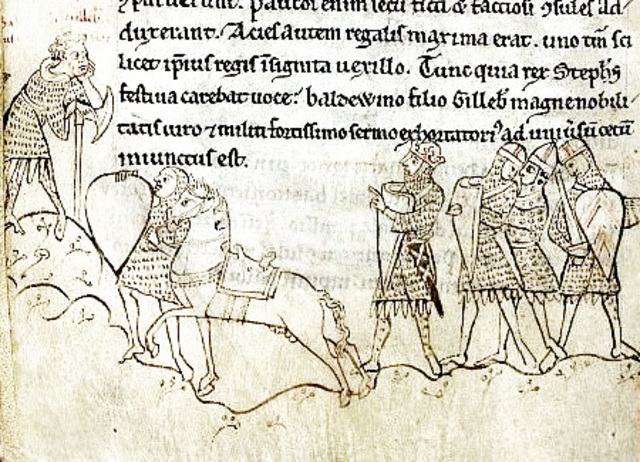 Pauci enim secū ficti & factiosi ꝯsules ad
duxerant. Acies autem regalis maxima erat. uno tn̄ sci
licet ip̄ius regis īsignita uexillo. Tunc quia rex Steph̄s
festiua carebat uoce: baldewino filio Gilleb̄ magne nobili
tatis uiro ⁊ militi fortissimo sermo exhortatoriꝰ ad uniūsū cetū
iniunctus est.